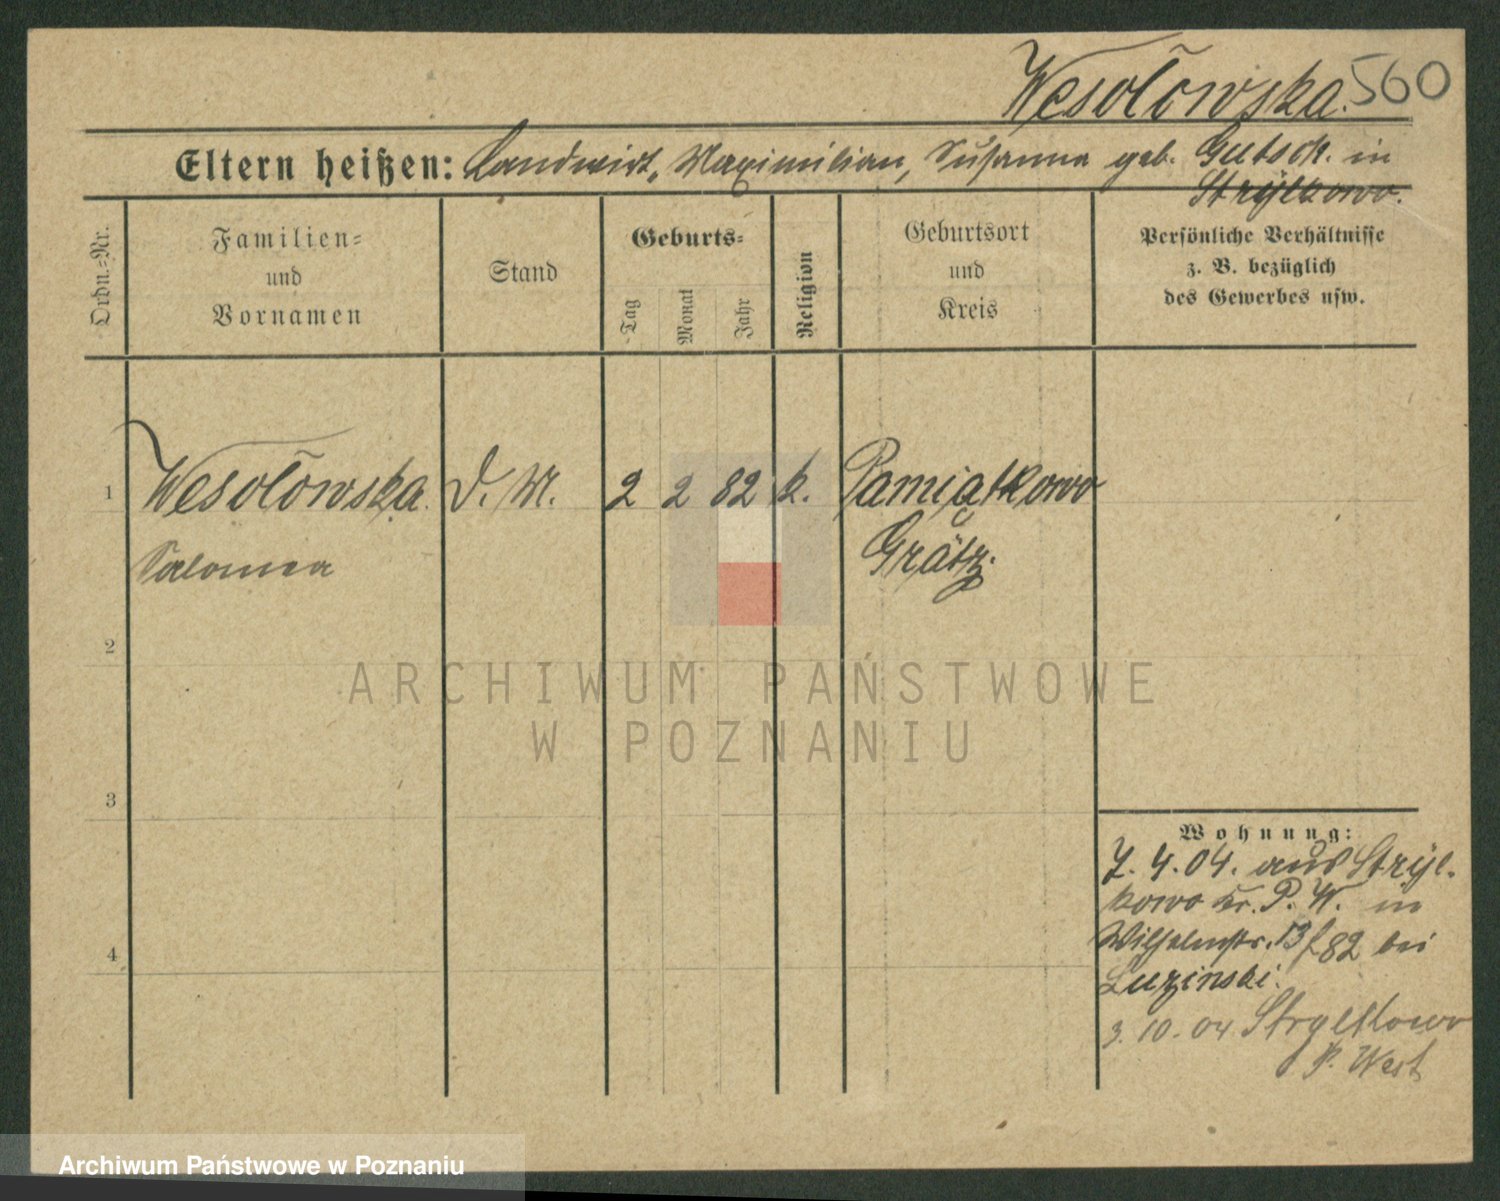 Wesołowska. 560
Eltern heißen: Landwirt, Maximilian, Susanna geb. Gutsch. in
Strÿlkowo.
Ordn.-Nr.
Familien-
und
Vornamen
Stand
Geburts-
Tag
Monat
Jahr
Religion
Geburtsort
und
Kreis
Persönliche Verhältnisse
z. B. bezüglich
des Gewerbes usw.
1 Wesołowska. D. M. 2 2 82 k. Pamiątkowo
Salomea Grätz.
2
ARCHIWUM PAŃSTWOWE
W POZNANIU
3
Wohnung:
7. 4. 04. aus Strÿl-
kowo Kr. P. W. in
Wilhelmstr. 13 f 82 bei
4
Luzinski.
3. 10. 04 Strylkowo
P. West
Archiwum Państwowe w Poznaniu